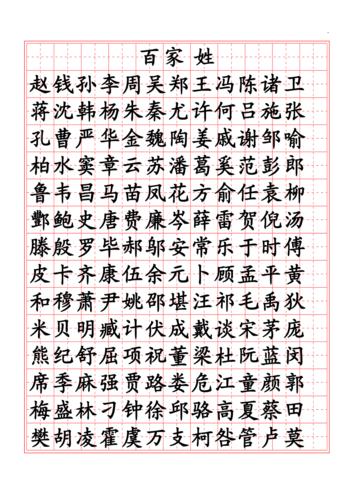 百家姓
赵钱孙李周吴郑王冯陈诸卫
蒋沈韩杨朱秦尤许何吕施张
孔曹严华金魏陶姜戚谢邹喻
柏水窦章云苏潘葛奚范彭郎
鲁韦昌马苗凤花方俞任袁柳
酆鲍史唐费廉岑薛雷贺倪汤
滕殷罗毕郝邬安常乐于时傅
皮卡齐康伍余元卜顾孟平黄
和穆萧尹姚邵堪汪祁毛禹狄
米贝明臧计伏成戴谈宋茅庞
熊纪舒屈项祝董梁杜阮蓝闵
席季麻强贾路娄危江童颜郭
梅盛林刁钟徐邱骆高夏蔡田
樊胡凌霍虞万支柯昝管卢莫